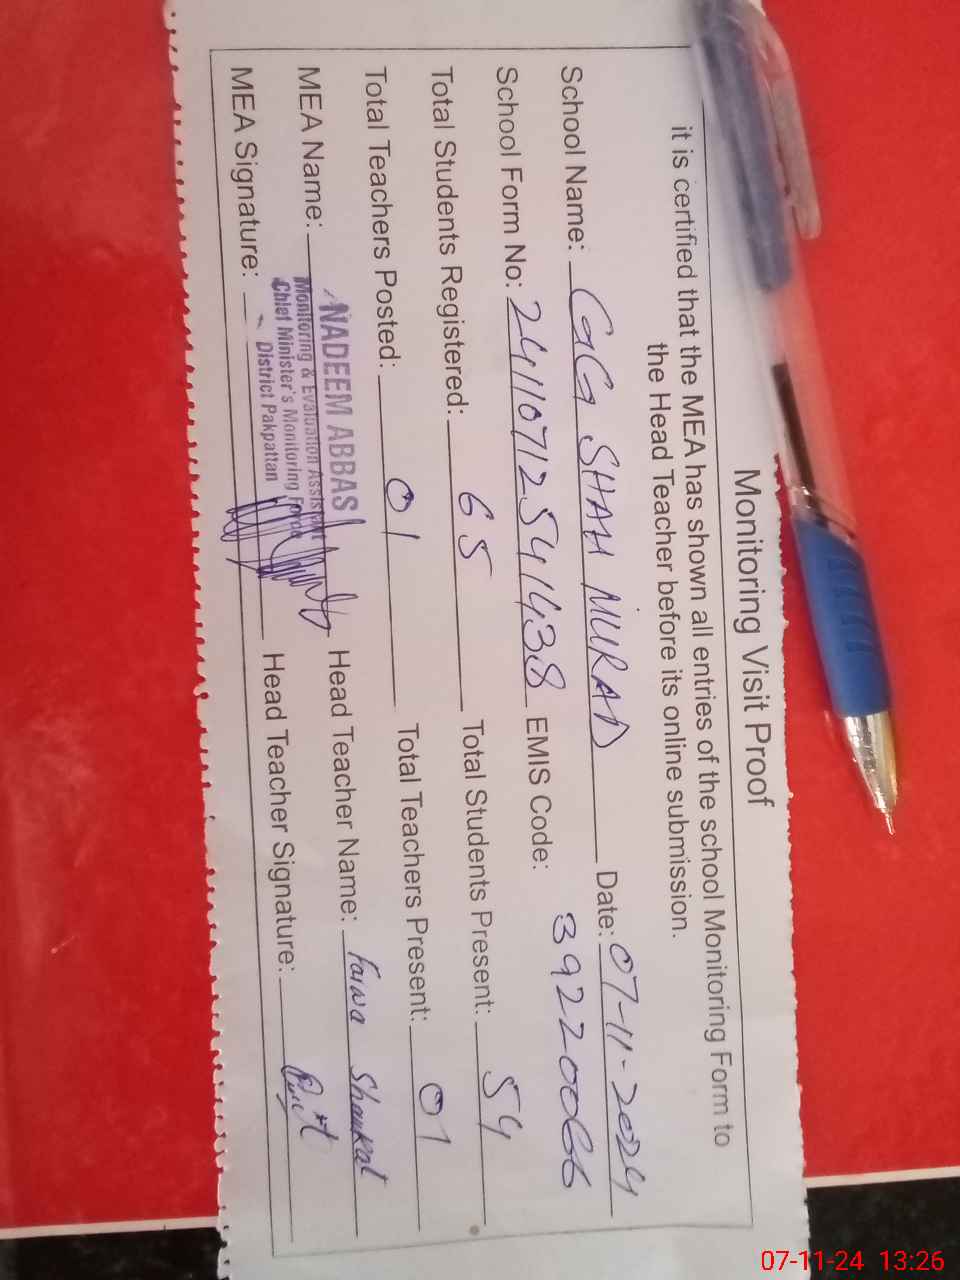 Monitoring Visit Proof
it is certified that the MEA has shown all entries of the school Monitoring Form to
the Head Teacher before its online submission.
School Name: GG SHAH MURAD Date: 07-11-2024
School Form No: 24110712541438 EMIS Code: 39220066
Total Students Registered: 65 Total Students Present: 54
Total Teachers Posted: 01 Total Teachers Present: 01
MEA Name: NADEEM ABBAS Head Teacher Name: Faiza Shaukat
Monitoring & Evaluation Assistant
Chief Minister's Monitoring Force
District Pakpattan
MEA Signature: Head Teacher Signature:
07-11-24 13:26